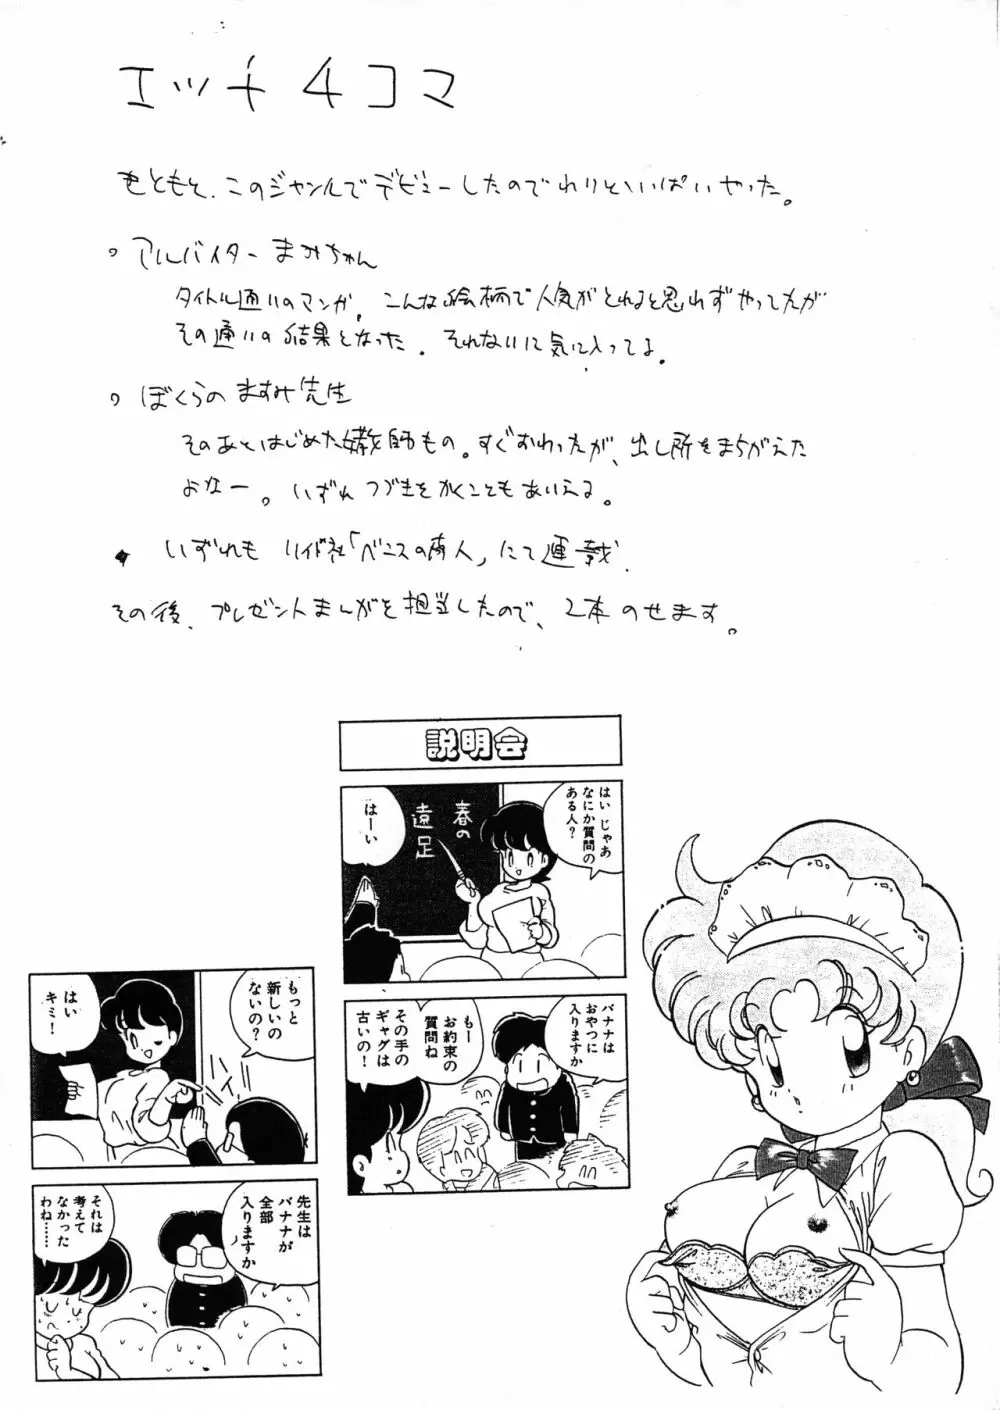 エッチ4コマ
もともと、このジャンルでデビューしたのでわりといっぱいやった。
アルバイターまみちゃん
タイトル通りのマンガ。こんな絵柄で人気がとれると思わずやってたが
その通りの結果となった。それなりに気に入ってる。
ぼくらのますみ先生
そのあとはじめた女教師もの。すぐおわったが、出し所をまちがえた
よなー。いずれつづきをかくこともありえる。
いずれも リイド社「ベニスの商人」にて連載
その後、プレゼントまんがを担当したので、2本のせます。
説明会
はい じゃあ
なにか質問の
ある人?
春の
遠足
はーい
バナナは
おやつに
入りますか
もー
お約束の
質問ね
その手の
ギャグは
古いの!
もっと
新しいの
ないの?
はい
キミ!
先生は
バナナが
全部
入りますか
それは
考えて
なかった
わね……